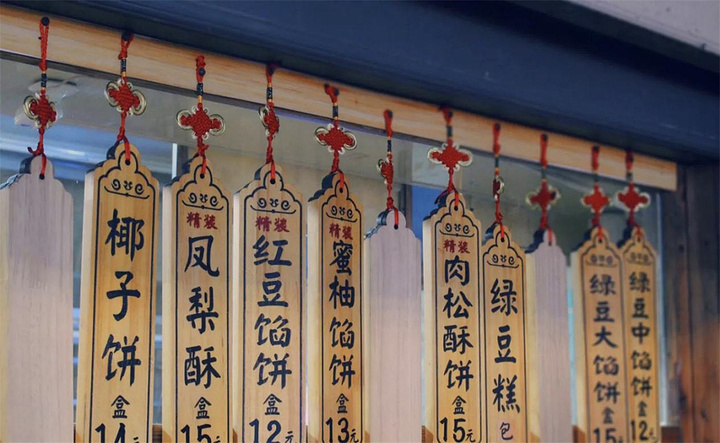 椰子饼 盒 14元
精装 凤梨酥 盒 15元
精装 红豆馅饼 盒 12元
精装 蜜柚馅饼 盒 13元
精装 肉松酥饼 盒 15元
绿豆糕 包
绿豆大馅饼 盒 15
绿豆中馅饼 盒 12元